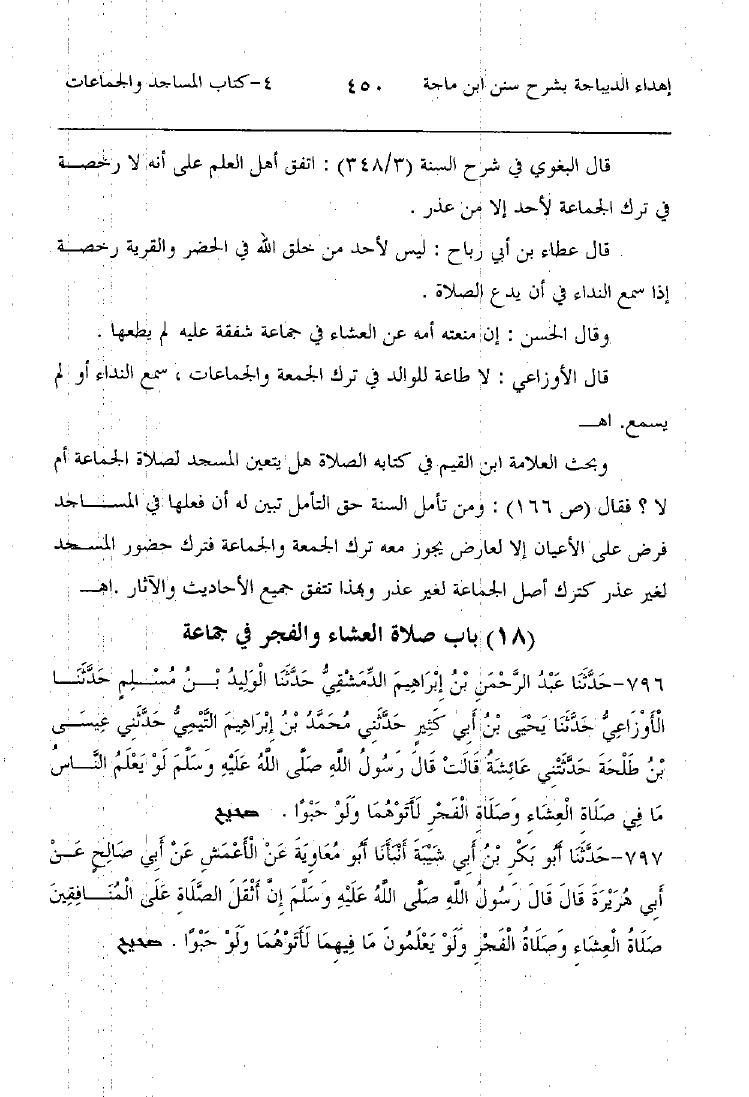 إهداء الديباجة بشرح سنن ابن ماجة ٤٥٠ ٤-كتاب المساجد والجماعات
قال البغوي في شرح السنة (٣٤٨/٣) : اتفق أهل العلم على أنه لا رخصة
في ترك الجماعة لأحد إلا من عذر .
قال عطاء بن أبي رباح : ليس لأحد من خلق الله في الحضر والقرية رخصة
إذا سمع النداء في أن يدع الصلاة .
وقال الحسن : إن منعته أمه عن العشاء في جماعة شفقة عليه لم يطعها .
قال الأوزاعي : لا طاعة للوالد في ترك الجمعة والجماعات ، سمع النداء أو لم
يسمع. اهـ
وبحث العلامة ابن القيم في كتابه الصلاة هل يتعين المسجد لصلاة الجماعة أم
لا ؟ فقال (ص ١٦٦) : ومن تأمل السنة حق التأمل تبين له أن فعلها في المساجد
فرض على الأعيان إلا لعارض يجوز معه ترك الجمعة والجماعة فترك حضور المسجد
لغير عذر كترك أصل الجماعة لغير عذر وبهذا تتفق جميع الأحاديث والآثار .اهـ
(١٨) باب صلاة العشاء والفجر في جماعة
٧٩٦-حَدَّثَنَا عَبْدُ الرَّحْمَنِ بْنُ إِبْرَاهِيمَ الدِّمَشْقِيُّ حَدَّثَنَا الْوَلِيدُ بْنُ مُسْلِمٍ حَدَّثَنَا
الْأَوْزَاعِيُّ حَدَّثَنَا يَحْيَى بْنُ أَبِي كَثِيرٍ حَدَّثَنِي مُحَمَّدُ بْنُ إِبْرَاهِيمَ التَّيْمِيُّ حَدَّثَنِي عِيسَى
بْنُ طَلْحَةَ حَدَّثَتْنِي عَائِشَةُ قَالَتْ قَالَ رَسُولُ اللهِ صَلَّى اللَّهُ عَلَيْهِ وَسَلَّمَ لَوْ يَعْلَمُ النَّاسُ
مَا فِي صَلَاةِ الْعِشَاءِ وَصَلَاةِ الْفَجْرِ لَأَتَوْهُمَا وَلَوْ حَبْوًا . صحيح
٧٩٧-حَدَّثَنَا أَبُو بَكْرِ بْنُ أَبِي شَيْبَةَ أَنْبَأَنَا أَبُو مُعَاوِيَةَ عَنْ الْأَعْمَشِ عَنْ أَبِي صَالِحٍ عَنْ
أَبِي هُرَيْرَةَ قَالَ قَالَ رَسُولُ اللهِ صَلَّى اللَّهُ عَلَيْهِ وَسَلَّمَ إِنَّ أَثْقَلَ الصَّلَاةِ عَلَى الْمُنَافِقِينَ
صَلَاةُ الْعِشَاءِ وَصَلَاةُ الْفَجْرِ وَلَوْ يَعْلَمُونَ مَا فِيهِمَا لَأَتَوْهُمَا وَلَوْ حَبْوًا . صحيح